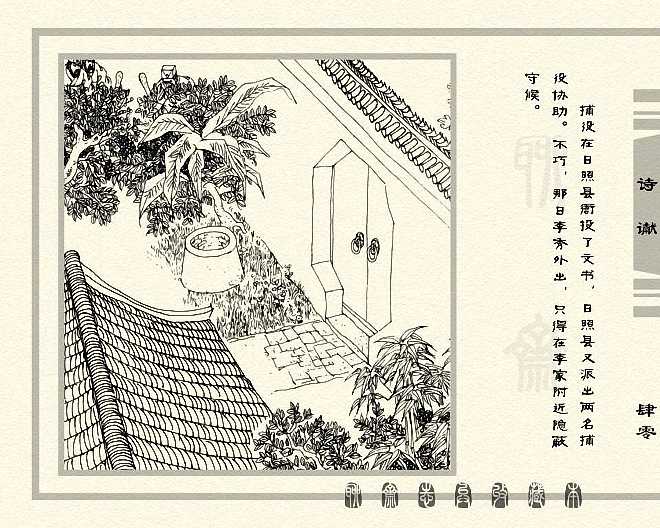 捕役在日照县衙投了文书，日照县又派出两名捕
役协助。不巧，那日李秀外出，只得在李家附近隐蔽
守候。
诗谳
肆零
聊斋志异收藏本